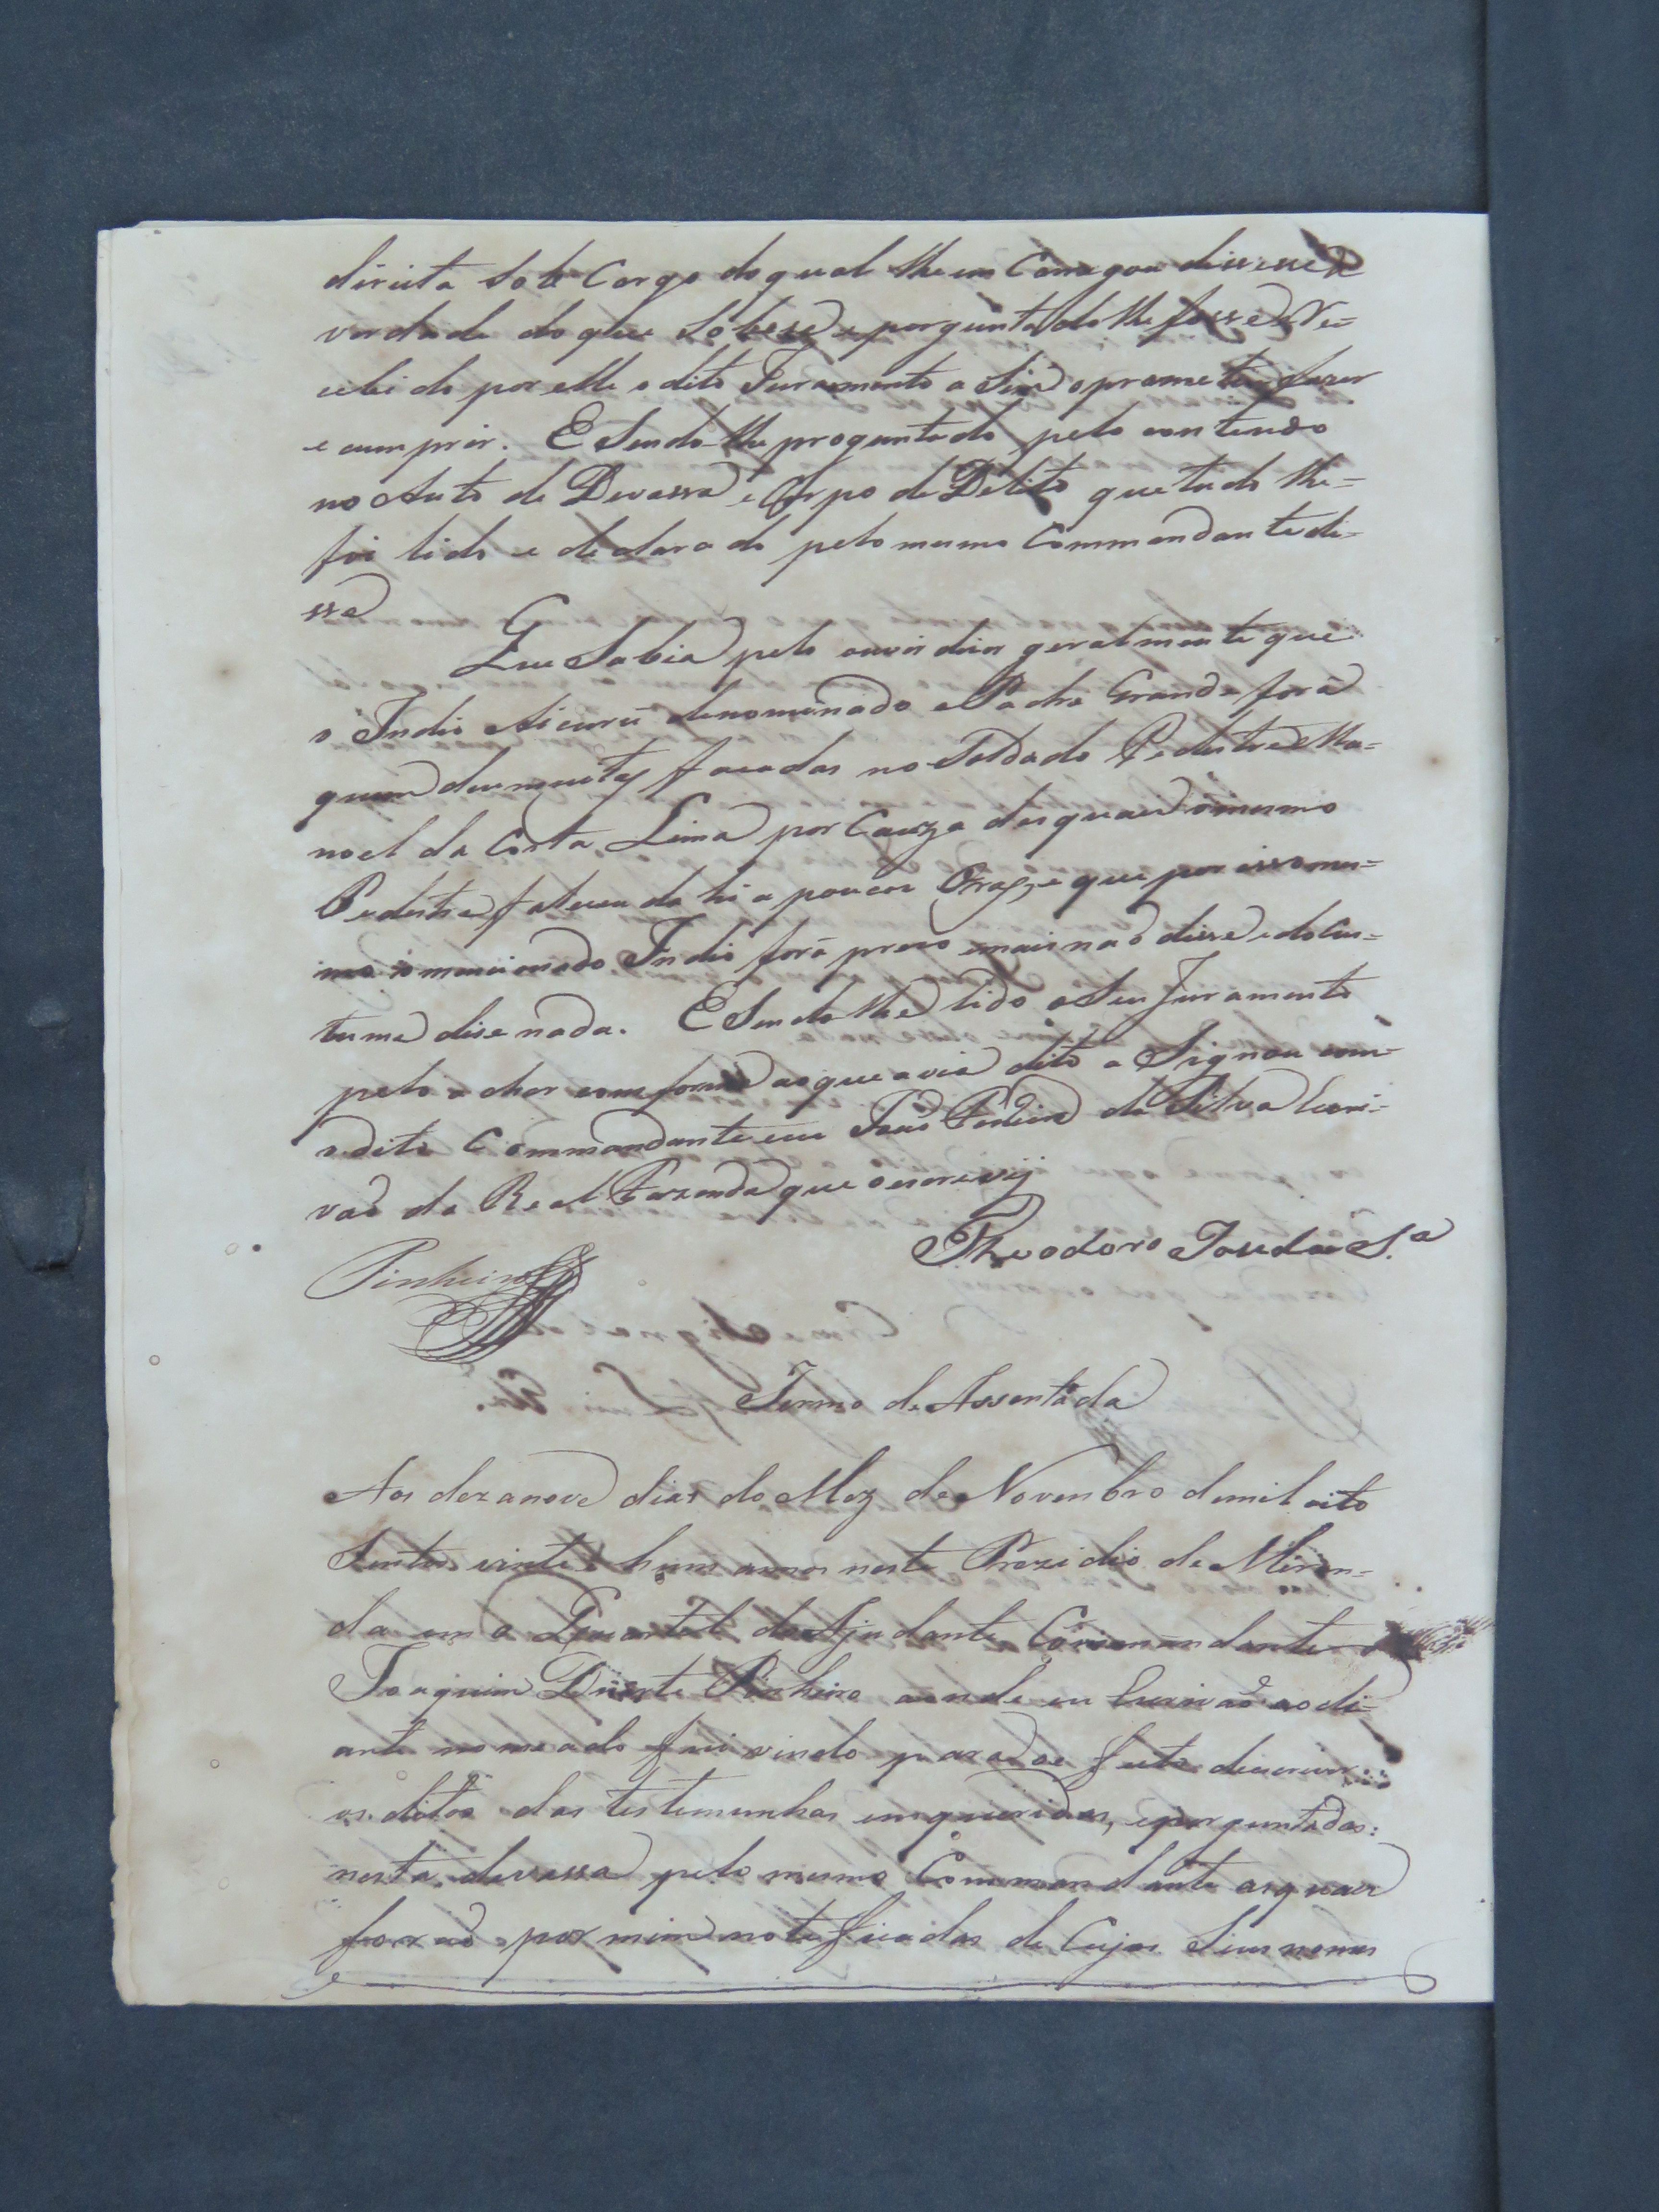 direita Sob Cargo do qual lhe em Carregou dissesse a
verdade do que Sobese e perguntado lhe fosse Re=
cebido por elle o dito Juramento a Sim o prometeu fazer
e cumprir. E Sendo lhe proguntado pelo contendo
no Auto de Devassa e Corpo de Delito que tudo lhe=
foi lido e declarado pelo mesmo Commandante di=
sse
Que Sabia pelo ouvir dizer geralmente que
o Indio denominado Padre Grande fora
quem deu muitas facadas no Soldado Pedestre Ma=
noel da Costa Lima por Cauza das quais o mesmo
Pedestre faleceu dahi a poucas Oras, e que por isso mes=
mo o mencionado Indio fora prezo e mais naõ disse e do Cus=
tume dise nada. E Sendo lhe lido o Seu Juramento
pelo achar comforme ao que avia dito a Signou com
o dito Commandante eu da Silva Escri=
vaõ da Real Fazenda que o escrevÿ
Theodoro Joze da S.ª
Pinheiro
Termo de Assentada
Aos dezanove dias do Mez de Novenbro de mil oito
Sentos vinte e hum annos neste Prezidio de Miran=
da em o Quartel do Ajudante Commandante
Joaquim Duarte Pinheiro aonde eu Escrivaõ ao di=
ante nomeado fui vindo para efeito de escrever
os ditos das testemunhas emqueridas, e perguntadas:
nesta devassa pelo mesmo Commandante as quaes
foraõ por mim noteficadas de Cujos Seus nomes